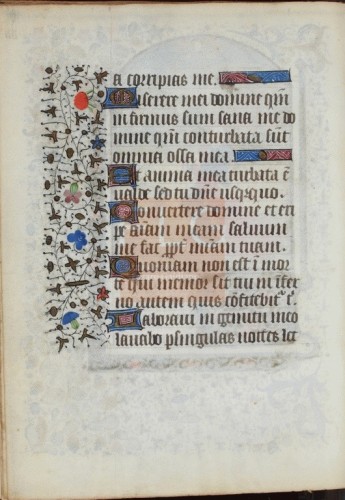 a corripias me.
Miserere mei domine qm̄
infirmus sum sana me do
mine qm̄ conturbata sūt
omnia ossa mea
Et anima mea turbata ē
ualde sed tu dn̄e usq̄quo.
Conuertere domine et eri
pe aīam meam saluum
me fac ꝓpt̄ mīam tuam.
Quoniam non est ī mor
te qui memor sit tui in īfer
no autem quis cōfitebit̄ t̄.
Laboraui in gemitu meo
lauabo ꝑ singulas noctes lect